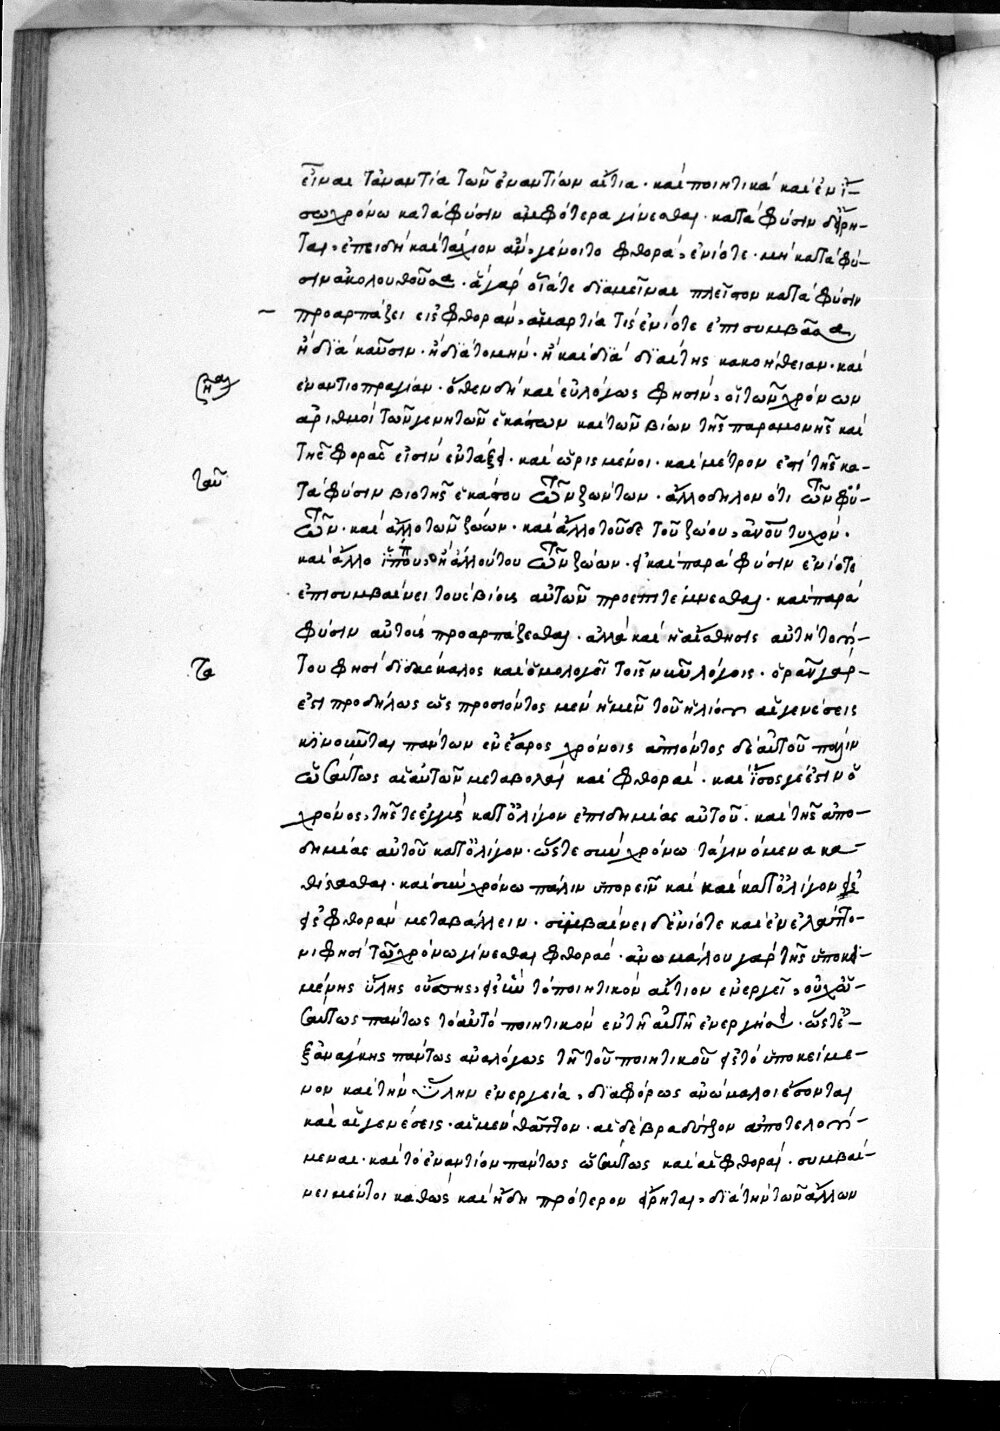 εἶναι τἀναντία τῶν ἐναντίων αἴτια · καὶ ποιητικὰ καὶ ἐν ἴ-
σω χρόνω κατὰ φύσιν ἀμφότερα γίνεσθαι · κατὰ φύσιν δ' εἴρη-
ται, ἐπειδὴ καὶ τάχιον ἂν γένοιτο φθορὰ, ἐνίοτε · μὴ κατὰ φύ-
σιν ἀκολουθοῦσα · ἃ γὰρ οἷά τε διαμεῖναι πλεῖστον κατὰ φύσιν
προαρπάζει εἰς φθορὰν, ἁμαρτία τις ἐνίοτε ἐπισυμβᾶσα,
ἢ διὰ καῦσιν · ἢ διὰ τομὴν · ἢ καὶ διὰ διαίτης κακοήθειαν · καὶ
ἐναντιοπραγίαν · ὅθεν δὴ καὶ εὐλόγως φησὶν, οἱ τῶν χρόνων
ἀριθμοὶ τῶν γενητῶν ἑκάστων καὶ τῶν βίων τῆς παραμονῆς καὶ
τῆς φορᾶς εἰσὶν ἐν τάξει · καὶ ὡρισμένοι · καὶ μέτρον ἐστὶ τῆς κα-
τὰ φύσιν βιοτῆς ἑκάστου τῶν ζώντων · ἄλλο δηλονότι τῶν φυ-
τῶν · καὶ ἄλλο τῶν ζώων · καὶ ἄλλο τοῦδε τοῦ ζώου, ἀνου τυχὸν ·
καὶ ἄλλο ἵππου, ἢ ἄλλου του τῶν ζώων · εἰ καὶ παρὰ φύσιν ἐνίοτε
ἐπισυμβαίνει τοὺς βίους αὐτῶν προεπιτέμνεσθαι · καὶ παρὰ
φύσιν αὐτοὺς προαρπάζεσθαι · ἀλλὰ καὶ ἡ αἴσθησις αὐτὴ τού-
του φησὶ διδάσκαλος καὶ ὁμολογεῖ τοῖς λόγοις · ὁρᾶν γάρ
ἐστι προδήλως ὡς προσιόντος μὲν ἡμῖν τοῦ ἡλίου αἱ γενέσεις
κινοῦνται πάντων ἐν ἔαρος χρόνοις ἀπιόντος δὲ αὐτοῦ πάλιν
ὡσαύτως αἱ αὐτῶν μεταβολαὶ καὶ φθοραί · καὶ ἴσος γέ ἐστιν ὁ
χρόνος, τῆς τε κατ' ὀλίγον ἐπιδημίας αὐτοῦ · καὶ τῆς ἀπο-
δημίας αὐτοῦ κατ' ὀλίγον · ὥστε σὺν χρόνω τὰ γινόμενα κα-
θίστασθαι · καὶ σὺν χρόνω πάλιν ὑπορεῖν καὶ καὶ κατ' ὀλίγον εἰς
εἰς φθορὰν μεταβάλλειν · συμβαίνει δ' ἐνίοτε καὶ ἐν ἐλάττο-
νι φησὶ τῶ χρόνω γίνεσθαι φθορὰς · ἀνωμάλου γὰρ τῆς ὑποκει-
μένης ὕλης οὔσης, εἰς ἣν τὸ ποιητικὸν αἴτιον ἐνεργεῖ, οὐχ ὡ-
σαύτως πάντως τὸ αὐτὸ ποιητικὸν ἐν τῆ αὐτῆ ἐνεργεία · ὥστε ἐ-
ξ ἀνάγκης πάντως ἀναλόγως τῆ τοῦ ποιητικοῦ εἰς τὸ ὑποκείμε-
νον καὶ τὴν ὕλην ἐνεργεία, διαφόρως ἀνώμαλοι ἔσονται
καὶ αἱ γενέσεις · αἱ μὲν θᾶττον · αἱ δὲ βραδύτερον ἀποτελού-
μεναι · καὶ τὸ ἐναντίον πάντως ὡσαύτως καὶ αἱ φθοραί · συμβαί-
νει μέντοι καθὼς καὶ ἤδη πρότερον εἴρηται, διὰ τὴν τῶν ἄλλων